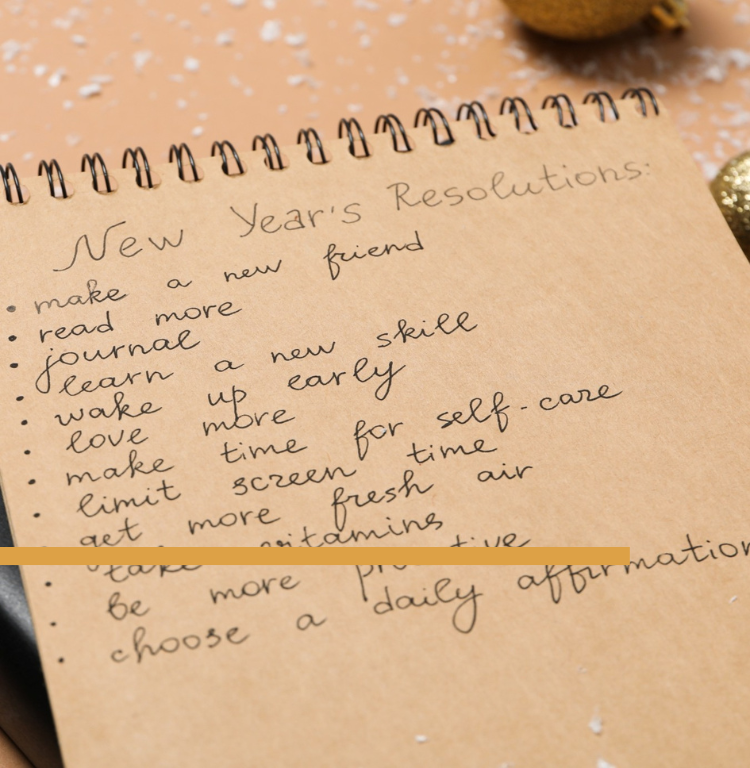 New Year's Resolutions:
• make a new friend
• read more
• journal
• learn a new skill
• wake up early
• love more
• make time for self-care
• limit screen time
• get more fresh air
• take vitamins
• be more
• choose a daily affirmation